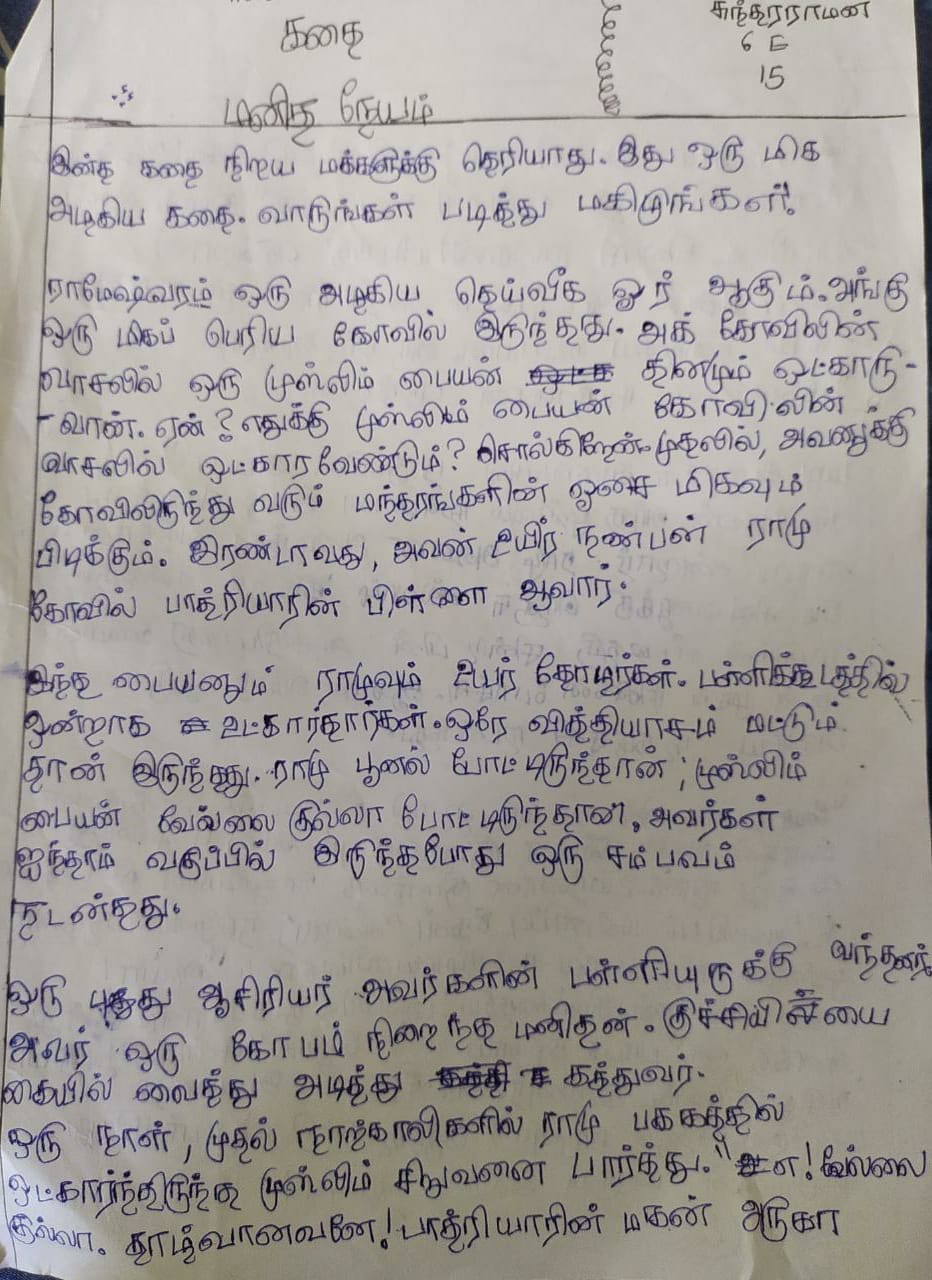 கதை
சுந்தரராமன
6 E
15
மனித நேயம்
இன்த கதை நிறய மக்களுக்கு தெரியாது. இது ஒரு மிக
அழகிய கதை. வாருங்கள் படித்து மகிழுங்கள்!
ராமேஷ்வரம் ஒரு அழகிய தெய்வீக ஓர் ஆகும். அங்கு
ஒரு மிகப் பெரிய கோவில் இருந்தது. அக் கோவிலின்
வாசலில் ஒரு முஸ்லிம் பையன் தினமும் ஒட்காரு-
-வான். ஏன்? எதுக்கு முஸ்லிம் பையன் கோவிலின்
வாசலில் ஒட்காரவேண்டும்? சொல்கிறேன். முதலில், அவனுக்கு
கோவிலிருந்து வரும் மந்தரங்களின் ஓசை மிகவும்
பிடிக்கும். இரண்டாவது, அவன் உயிர் நண்பன் ராமு
கோவில் பாத்ரியாரின் பிள்ளை ஆவார்.
இந்த பையனும் ராமுவும் உயர் தோழர்கள். பள்ளிக்கூடத்தில்
ஒன்றாக உட்கார்தார்கள். ஒரே வித்தியாசம் மட்டும்
தான் இருந்தது. ராமு பூனல் போட்டிருந்தான்; முஸ்லிம்
பையன் வேல்லை குல்லா போட்டிருந்தான். அவர்கள்
ஐந்தாம் வகுப்பில் இருந்தபோது ஒரு சம்பவம்
நடன்தது.
ஒரு புதது ஆசிரியர் அவர்களின் பள்ளியுருக்கு வந்தனர்.
அவர் ஒரு கோபம் நிறைந்த மனிதன். குச்சியின்யை
கையில் வைத்து அடித்து கத்துவர்.
ஒரு நாள், முதல் நாற்காலிகளில் ராமு பக்கத்தில்
ஒட்கார்ந்திருந்த முஸ்லிம் சிறுவனை பார்த்து. "ஏ! வேல்லை
குல்லா. தாழ்வானவனே! பாத்ரியாரின் மகன் அருகா